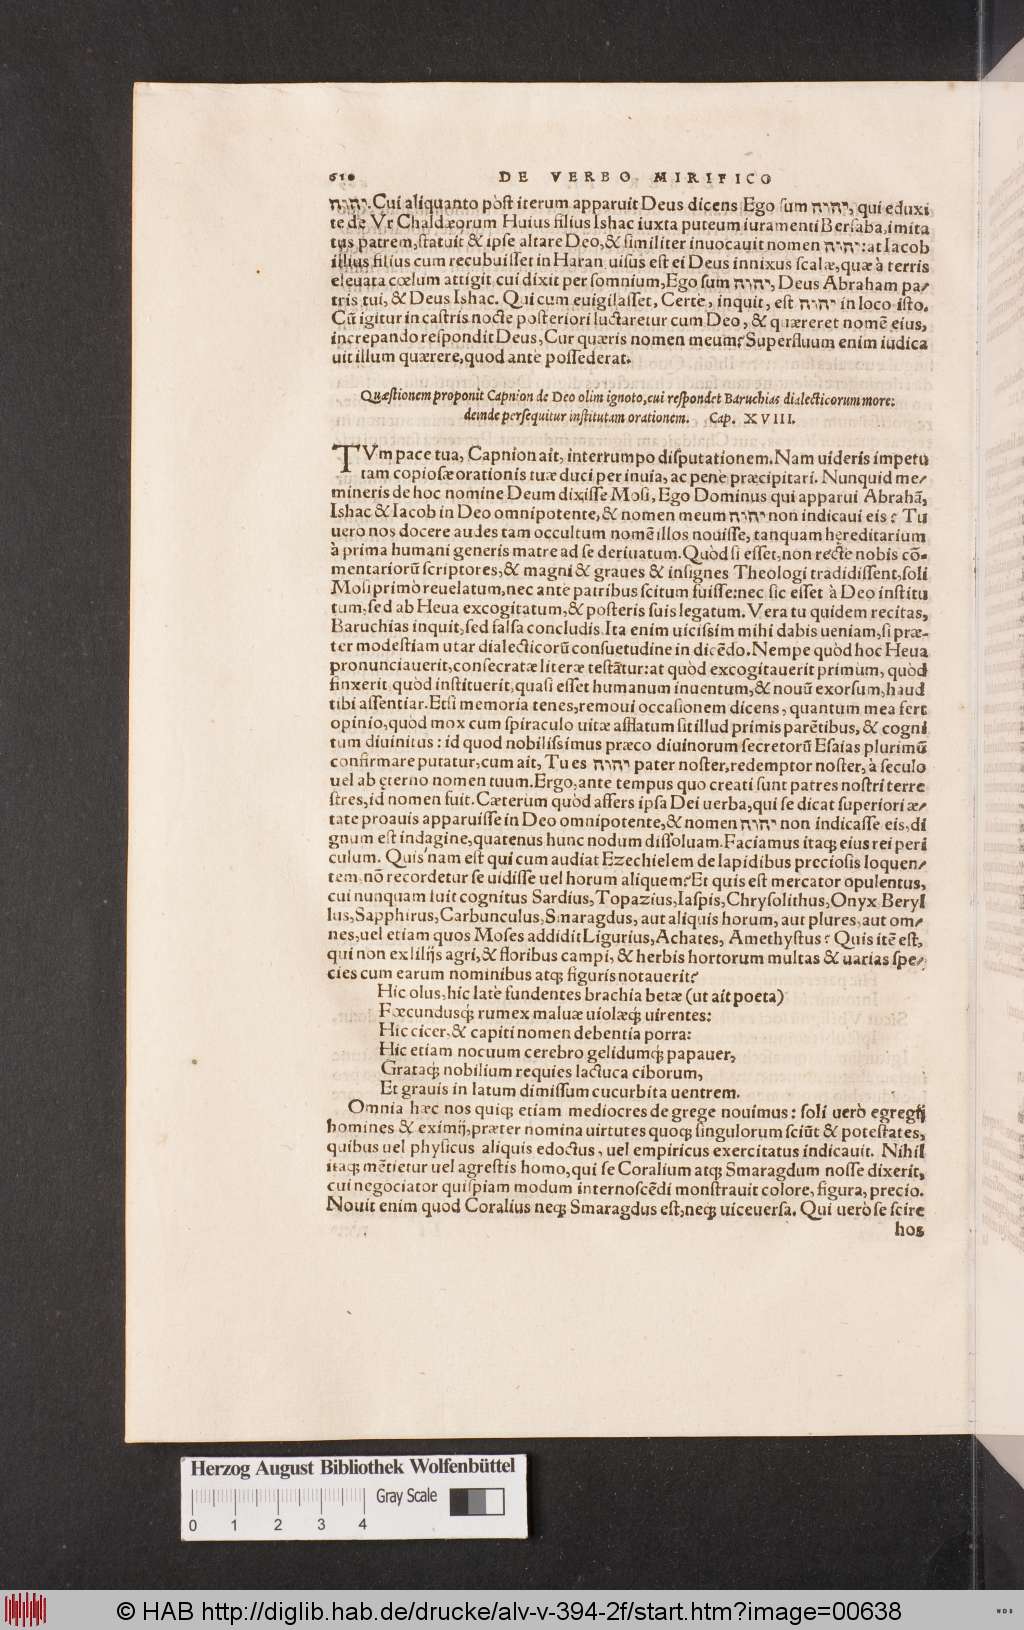 610 DE VERBO MIRIFICO
יהוה. Cui aliquanto pòst iterum apparuit Deus dicens Ego sum יהוה, qui eduxi
te de Vr Chaldæorum Huius filius Ishac iuxta puteum iuramenti Bersaba, imita
tus patrem, statuit & ipse altare Deo, & similiter inuocauit nomen יהוה: at Iacob
illius filius cum recubuisset in Haran uisus est ei Deus innixus scalæ, quæ à terris
eleuata cœlum attigit cui dixit per somnium, Ego sum יהוה, Deus Abraham pa/
tris tui, & Deus Ishac. Qui cum euigilasset, Certe, inquit, est יהוה in loco isto.
Cū igitur in castris nocte posteriori luctaretur cum Deo, & quæreret nomē eius,
increpando respondit Deus, Cur quæris nomen meum? Superfluum enim iudica
uit illum quærere, quod ante possederat.
Quæstionem proponit Capnion de Deo olim ignoto, cui respondet Baruchias dialecticorum more:
deinde persequitur institutam orationem. Cap. XVIII.
TVm pace tua, Capnion ait, interrumpo disputationem. Nam uideris impetu
tam copiosæ orationis tuæ duci per inuia, ac pene præcipitari. Nunquid me/
mineris de hoc nomine Deum dixisse Mosi, Ego Dominus qui apparui Abrahā,
Ishac & Iacob in Deo omnipotente, & nomen meum יהוה non indicaui eis? Tu
uero nos docere audes tam occultum nomē illos nouisse, tanquam hereditarium
à prima humani generis matre ad se deriuatum. Quòd si esset, non recte nobis cō-
mentariorū scriptores, & magni & graues & insignes Theologi tradidissent, soli
Mosi primò reuelatum, nec ante patribus scitum fuisse: nec sic esset à Deo institu
tum, sed ab Heua excogitatum, & posteris suis legatum. Vera tu quidem recitas,
Baruchias inquit, sed falsa concludis. Ita enim uicissim mihi dabis ueniam, si præ-
ter modestiam utar dialecticorū consuetudine in dicēdo. Nempe quòd hoc Heua
pronunciauerit, consecratæ literæ testātur: at quòd excogitauerit primum, quòd
finxerit, quòd instituerit, quasi esset humanum inuentum, & nouū exorsum, haud
tibi assentiar. Etsi memoria tenes, remoui occasionem dicens, quantum mea fert
opinio, quòd mox cum spiraculo uitæ afflatum sit illud primis parētibus, & cogni
tum diuinitus: id quod nobilissimus præco diuinorum secretorū Esaias plurimū
confirmare putatur, cum ait, Tu es יהוה pater noster, redemptor noster, à seculo
uel ab ęterno nomen tuum. Ergo, ante tempus quo creati sunt patres nostri terre
stres, id nomen fuit. Cæterum quòd affers ipsa Dei uerba, qui se dicat superiori æ/
tate proauis apparuisse in Deo omnipotente, & nomen יהוה non indicasse eis, di
gnum est indagine, quatenus hunc nodum dissoluam. Faciamus itaq; eius rei peri
culum. Quis'nam est qui cum audiat Ezechielem de lapidibus preciosis loquen/
tem, nō recordetur se uidisse uel horum aliquem? Et quis est mercator opulentus,
cui nunquam fuit cognitus Sardius, Topazius, Iaspis, Chrysolithus, Onyx Beryl
lus, Sapphirus, Carbunculus, Smaragdus, aut aliquis horum, aut plures, aut om/
nes, uel etiam quos Moses addidit Ligurius, Achates, Amethystus? Quis itē est,
qui non ex lilijs agri, & floribus campi, & herbis hortorum multas & uarias spe/
cies cum earum nominibus atq; figuris notauerit?
Hic olus, hic late fundentes brachia betæ (ut ait poeta)
Fœcundusq́; rumex maluæ uiolæq́; uirentes:
Hic cicer, & capiti nomen debentia porra:
Hic etiam nocuum cerebro gelidumq́; papauer,
Grataq́; nobilium requies lactuca ciborum,
Et grauis in latum dimissum cucurbita uentrem.
Omnia hæc nos quiq; etiam mediocres de grege nouimus: soli uerò egregij
homines & eximij, præter nomina uirtutes quoq; singulorum sciūt & potestates,
quibus uel physicus aliquis edoctus, uel empiricus exercitatus indicauit. Nihil
itaq; mētietur uel agrestis homo, qui se Coralium atq; Smaragdum nosse dixerit,
cui negociator quispiam modum internoscēdi monstrauit colore, figura, precio.
Nouit enim quod Coralius neq; Smaragdus est, neq; uiceuersa. Qui uerò se scire
hos
Herzog August Bibliothek Wolfenbüttel
Gray Scale
0 1 2 3 4
© HAB http://diglib.hab.de/drucke/alv-v-394-2f/start.htm?image=00638